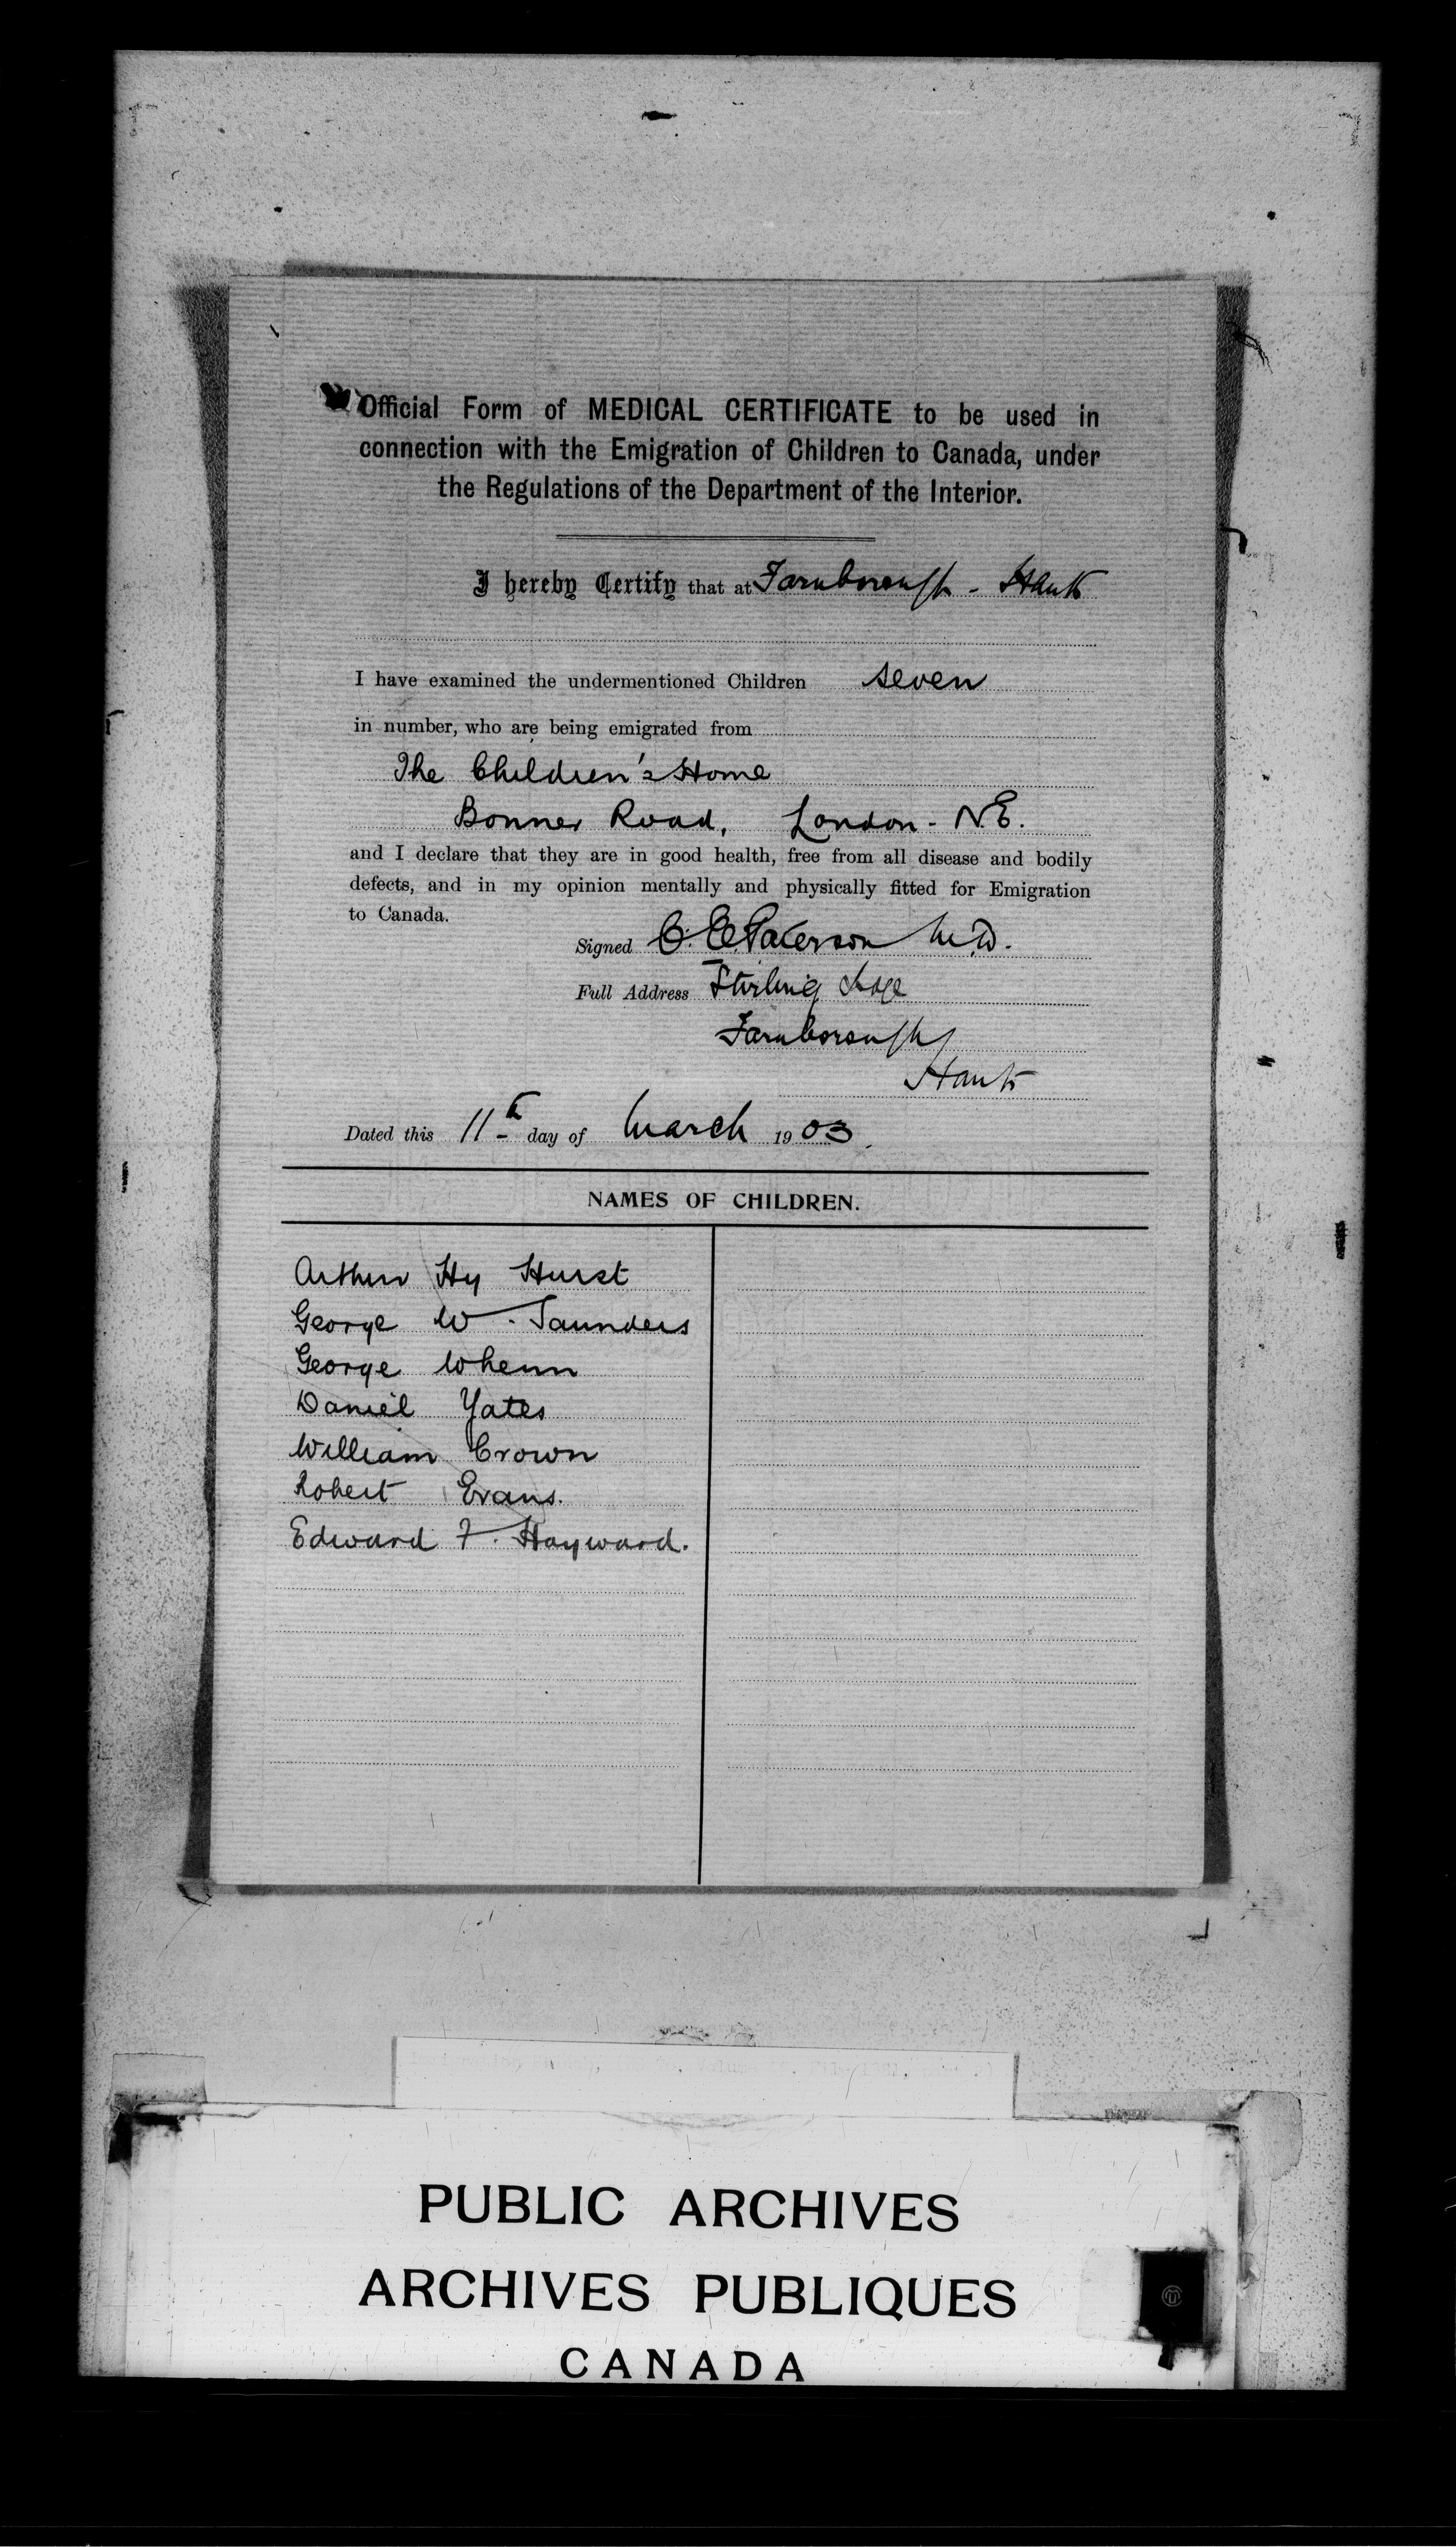 Official Form of MEDICAL CERTIFICATE to be used in
connection with the Emigration of Children to Canada, under
the Regulations of the Department of the Interior.
I hereby Certify that at Farnborough - Hants
I have examined the undermentioned Children seven
in number, who are being emigrated from
The Children's Home
Bonner Road, London - N.E.
and I declare that they are in good health, free from all disease and bodily
defects, and in my opinion mentally and physically fitted for Emigration
to Canada.
Signed C. E. Paterson M.D.
Full Address Stirling Lodge
Farnborough
Hants
Dated this 11th day of March 1903.
NAMES OF CHILDREN.
Arthur Hy Hurst
George W. Saunders
George Whenn
Daniel Yates
William Crown
Robert Evans.
Edward F. Hayward.
PUBLIC ARCHIVES
ARCHIVES PUBLIQUES
CANADA